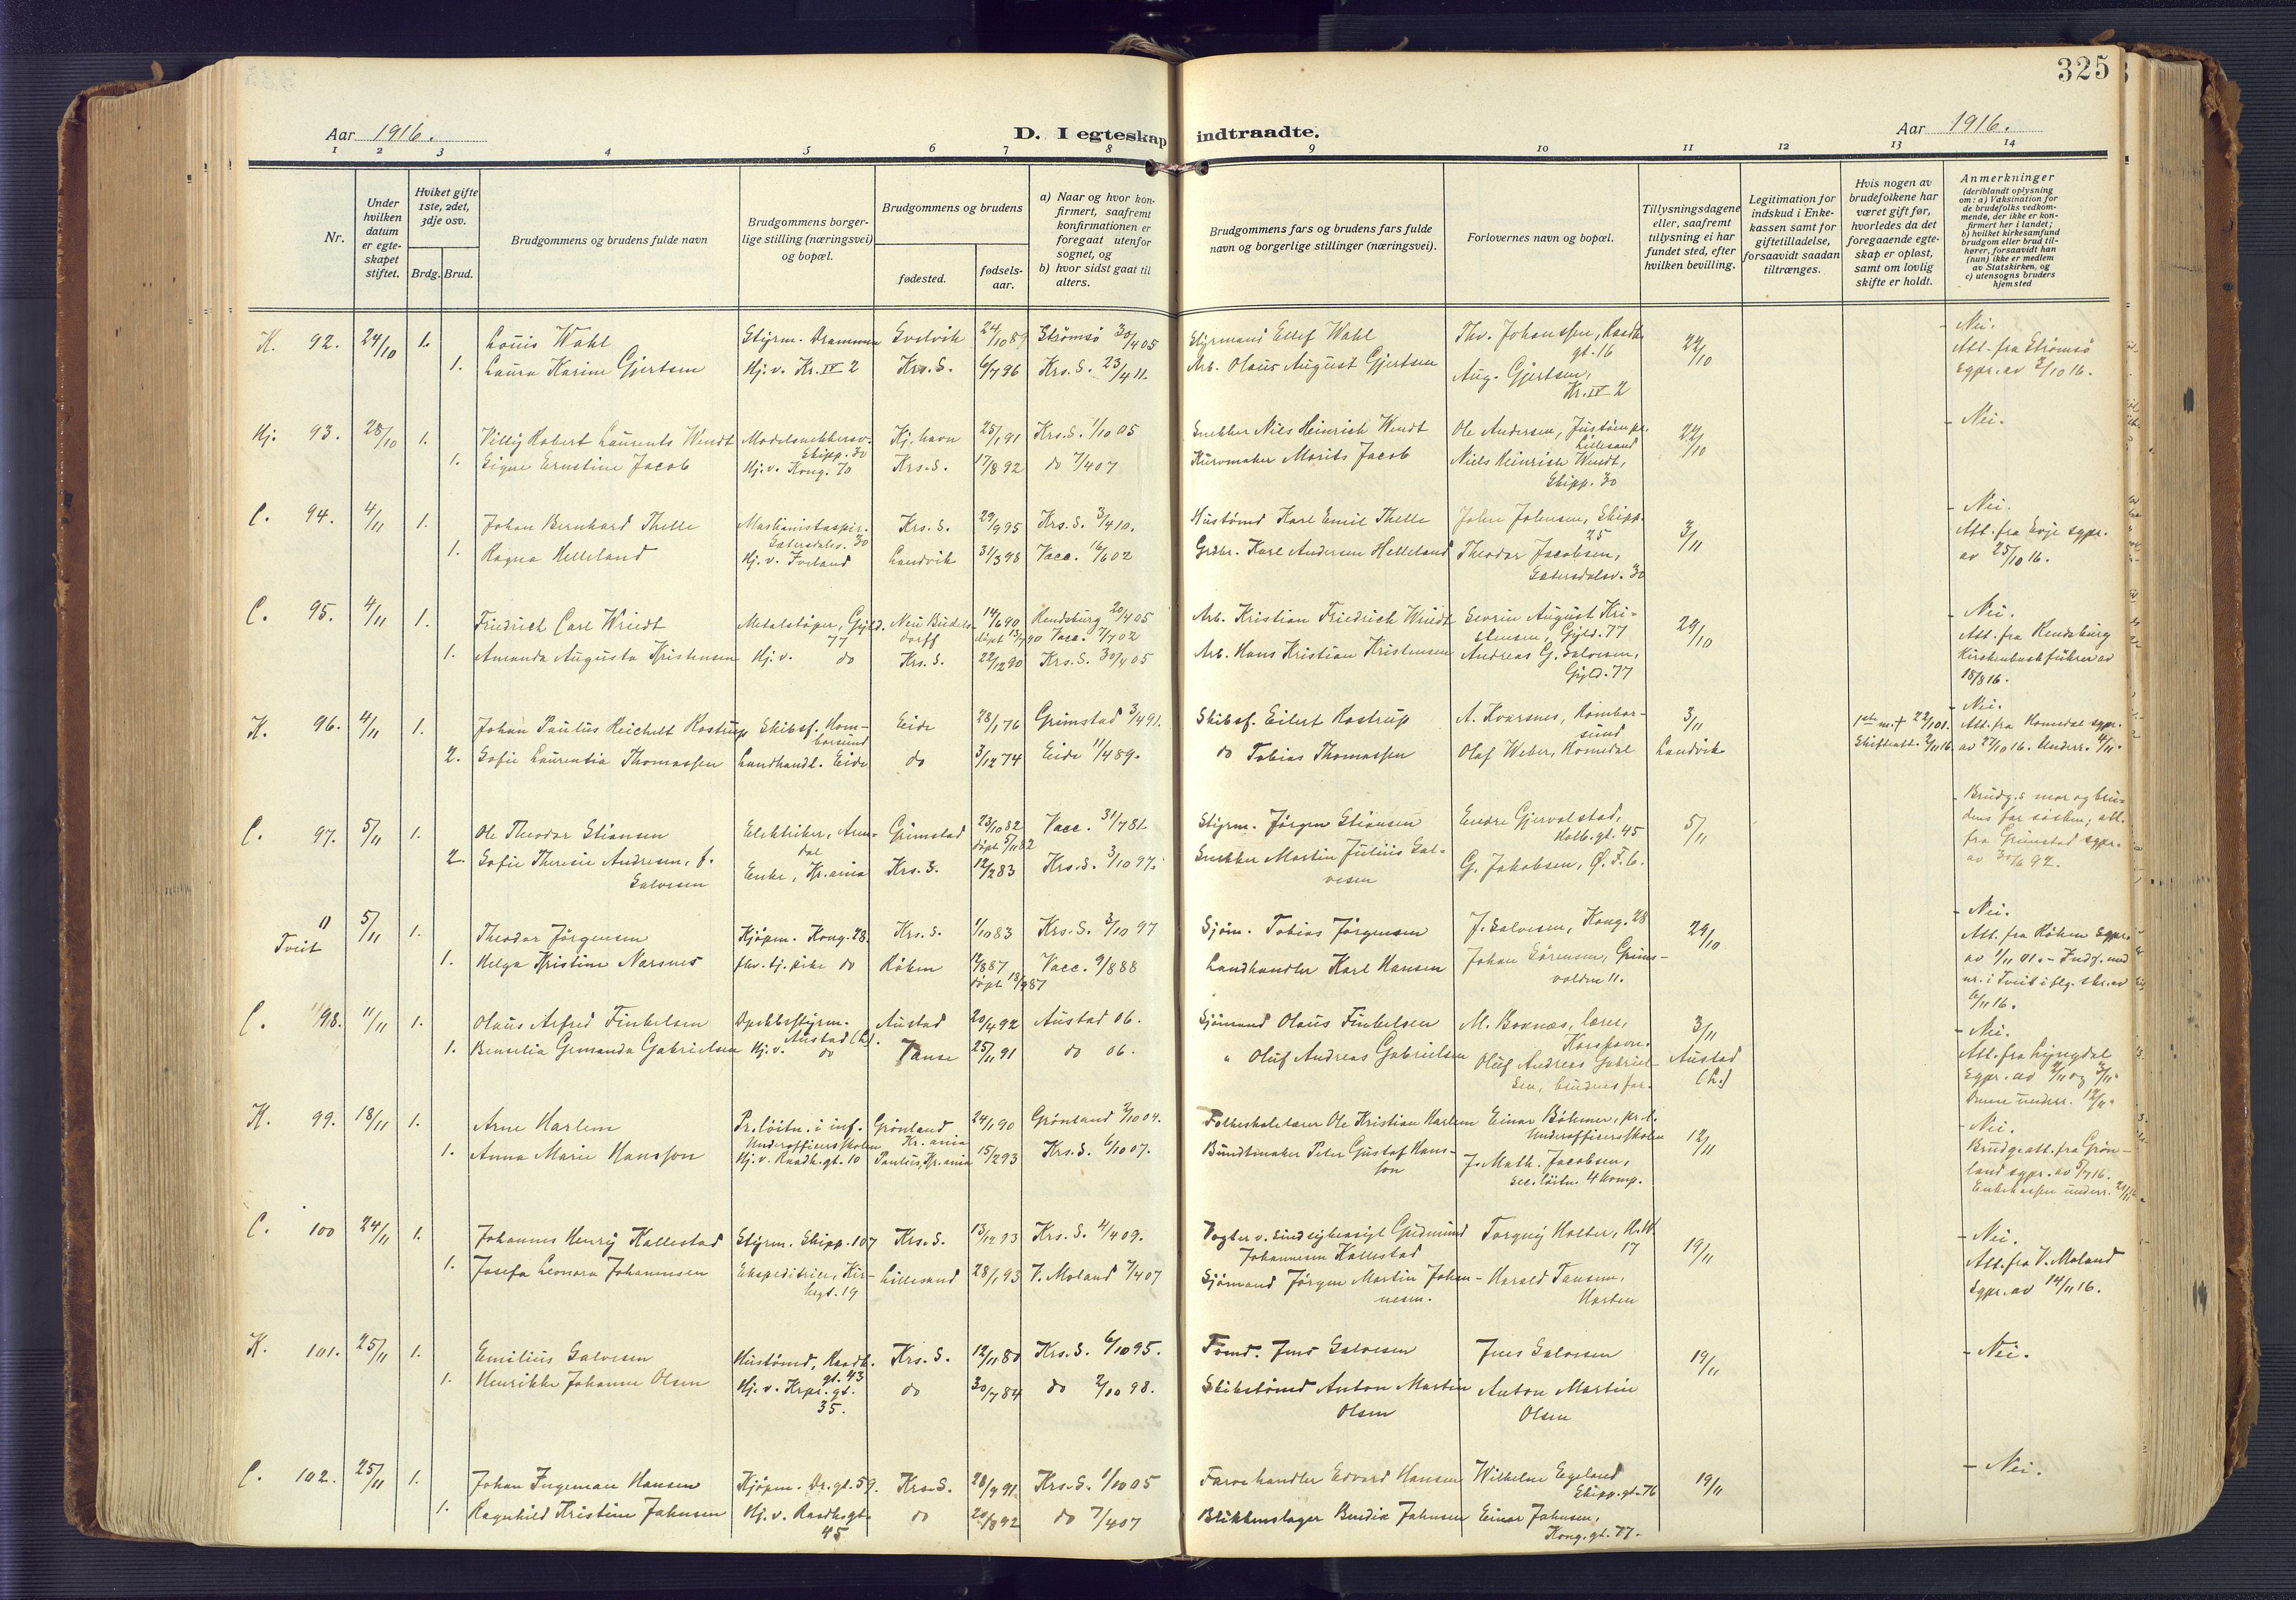 325
Aar 1916.
D. I egteskap indtraadte.
Aar 1916.
1 2 3 4 5 6 7 8 9 10 11 12 13 14
Nr.
Under hvilken datum er egteskapet stiftet.
Hviket gifte 1ste, 2det, 3dje osv.
Brdg. Brud.
Brudgommens og brudens fulde navn
Brudgommens borgerlige stilling (næringsvei) og bopæl.
Brudgommens og brudens
fødested.
fødselsaar.
a) Naar og hvor konfirmert, saafremt konfirmationen er foregaat utenfor sognet, og
b) hvor sidst gaat til alters.
Brudgommens fars og brudens fars fulde navn og borgerlige stillinger (næringsvei).
Forlovernes navn og bopæl.
Tillysningsdagene eller, saafremt tillysning ei har fundet sted, efter hvilken bevilling.
Legitimation for indskud i Enkekassen samt for giftetilladelse, forsaavidt saadan tiltrænges.
Hvis nogen av brudefolkene har været gift før, hvorledes da det foregaaende egteskap er opløst, samt om lovlig skifte er holdt.
Anmerkninger
(deriblandt oplysning om: a) Vaksination for de brudefolks vedkommende, der ikke er konfirmert her i landet;
b) hvilket kirkesamfund brudgom eller brud tilhører, forsaavidt han (hun) ikke er medlem av Statskirken, og
c) utensogns bruders hjemsted
K. 92. 24/10 1. Louis Wahl Styrm. Drammen Svelvik 24/10 89 Strømsø 30/4 05 Styrmand Ellef Wahl Thv. Johanssen, Raadh.gt. 16 22/10 - Nei.
1. Laura Karine Gjertsen Hj. v. Kr. IV 2 Krs. S. 6/7 96 Krs. S. 23/4 11. Arb. Olaus August Gjertsen Aug. Gjertsen, Kr. IV 2 Att. fra Strømsø sgpr. av 2/10 16.
Hj. 93. 28/10 1. Villy Robert Laurents Wendt Modelsnekkersv. Skipp. 30 Kj.havn 25/1 91 Krs. S. 1/10 05 Snekker Niels Heinrich Wendt Ole Andersen, Justøen pr. Lillesand 22/10 - Nei.
1. Signe Ernstine Jacob Hj. v. Kong. 70 Krs. S. 17/8 92 do 7/4 07 Kurvmaker Morits Jacob Niels Heinrich Wendt, Skipp. 30
C. 94. 4/11 1. Johan Bernhard Thelle Maskinistaspir. Sætersdalsv. 30 Krs. S. 29/9 95 Krs. S. 3/4 10. Hustømd Karl Emil Thelle John Johnsen, Skipp. 25 3/11 - Nei.
1. Ragna Helleland Hj. v. Iveland Landvik 31/3 98 Vacc. 16/6 02 Grdbr. Karl Andersen Helleland Theodor Jacobsen, Sætersdalsv. 30 Att. fra Evje sgpr. av 25/10 16.
C. 95. 4/11 1. Friedrich Carl Wriedt Metalstøper, Gyld. 77 Neu Büdelsdorff 14/6 90 døpt 13/7 90 Rendsburg 20/4 05 Vacc. 7/7 02 Arb. Kristian Friedrich Wriedt Severin August Kristensen, Gyld. 77 29/10 - Nei.
1. Amanda Augusta Kristensen Hj. v. do Krs. S. 22/12 90 Krs. S. 30/4 05 Arb. Hans Kristian Kristensen Andreas G. Salvesen, Gyld. 77 Att. fra Rendsburg Kirchenbuchführer av 18/8 16.
K. 96. 4/11 1. Johan Paulus Reichelt Rostrup Skibsf. Homborsund Eide 28/1 76 Grimstad 3/4 91. Skibsf. Eilert Rostrup A. Kvarsnes, Homborsund 3/11 1ste m. † 22/1 01. - Nei.
2. Sofie Laurentia Thomassen Landhandl. Eide do 3/12 74 Eide 11/4 89. do Tobias Thomassen Olaf Weber, Homedal Landvik Skifteatt. 2/11 16. Att. fra Homedal sgpr. av 27/10 16. Underr. 4/11.
C. 97. 5/11 1. Ole Theodor Stiansen Elektriker, Arendal Grimstad 23/10 82 døpt 5/11 82 Vacc. 31/7 82 Styrm. Jørgen Stiansen Endre Gjervolstad, Holb.gt. 45 5/11 - Brudg.s mor og brudens far søsken; att. fra Grimstad sgpr. av 30/6 92.
2. Sofie Theresie Andresen, f. Salvesen Enke, Kr.ania Krs. S. 12/2 83 Krs. S. 3/10 97. Snekker Martin Julius Salvesen G. Jakobsen, Ø. F. 6.
11 Tveit 5/11 1. Theodor Jørgensen Kjøpm. Kong. 28. Krs. S. 1/10 83 Krs. S. 3/10 97 Sjøm. Tobias Jørgensen J. Salvesen, Kong. 28 29/10 - Nei.
1. Helga Kristine Narsnes fhv. tj. pike do Røken 12/8 87 døpt 18/9 87 Vacc. 9/8 88 Landhandler Karl Hansen Johan Sørensen, Grimsvolden 11. Att. fra Røken sgpr. av 1/11 01. - Indf. med nr. i Tveit iflg. skr. av 6/11 16.
C. 98. 11/11 1. Olaus Alfred Finkelsen Dækksstyrm. Austad (L). Austad 20/4 92 Austad 06. Sjømand Olaus Finkelsen M. Boxnæs, lærer, Korshavn. 3/11 - Nei.
1. Benselia Gemanda Gabrielsen Hj. v. do Vanse 25/11 91 do 06. " Oluf Andreas Gabrielsen Oluf Andreas Gabrielsen, brudens far. Austad (L.) Att. fra Lyngdal sgpr. av 2/11 og 3/11. Denne underr. 12/11.
K. 99. 18/11 1. Arne Harlem Pr.løitn. i inf. Underofficersskolen Grønland Kr.ania 24/1 90 Grønland 2/10 04. Folkeskolelærer Ole Kristian Harlem Einar Böhmer, pr.l. Underofficersskolen 12/11 - Nei.
1. Anna Marie Hansson Hj. v. Raadh.gt. 10 Paulus, Kr.ania 15/2 93 Krs. S. 6/10 07. Bundtmaker Peter Gustaf Hansson J. Math. Jacobsen, sec. løitn. 4 komp. Brudg.att. fra Grønland sgpr. av 5/7 16. Enkekassen underr. 21/11 16
C. 100 24/11 1. Johannes Henry Kallestad Styrm. Skipp. 107 Krs. S. 13/12 93 Krs. S. 4/4 09. Vogter v. Sindssykeasyl Gudmund Johannesen Kallestad Torquy Holter, H.W. 17 19/11 - Nei.
1. Josefa Leonora Johannesen Ekspeditrice, Kirkegt. 19 Lillesand 28/1 93 V. Moland 7/4 07 Sjømand Jørgen Martin Johannesen. Harald Tansem, Marken Att. fra V. Moland sgpr. av 14/11 16.
K. 101. 25/11 1. Emilius Salvesen Hustømd, Raadh.gt. 43 Krs. S. 12/11 80 Krs. S. 6/10 95. Tømd. Jens Salvesen Jens Salvesen 19/11 - Nei.
1. Henrikke Johanne Olsen Hj. v. Krpr.gt. 35. do 30/7 84 do 2/10 98. Skibstømd Anton Martin Olsen Anton Martin Olsen
C. 102. 25/11 1. Johan Ingeman Hansen Kjøpm. Dr.gt. 59. Krs. S. 28/9 91 Krs. S. 1/10 05 Farvehandler Edvard Hansen Wilhelm Egeland Skipp.gt. 76 19/11 - Nei.
1. Ragnhild Kristine Johnsen Hj. v. Raadhsgt. 45 do 20/8 92 do 7/4 07 Blikkenslager Bendix Johnsen Einar Johnsen, Kong.gt. 77.